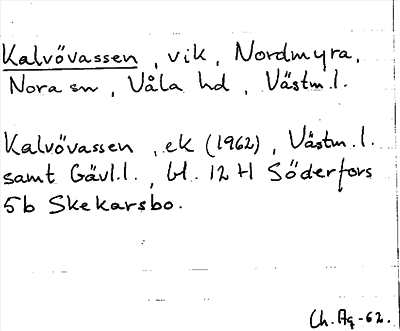 Kalvövassen, vik, Nordmyra,
Nora sn, Våla hd, Västm.l.
Kalvövassen, ek (1962), Västm.l.
samt Gävl.l., bl. 12 H Söderfors
5b Skekarsbo.
Ch. Ag -62.